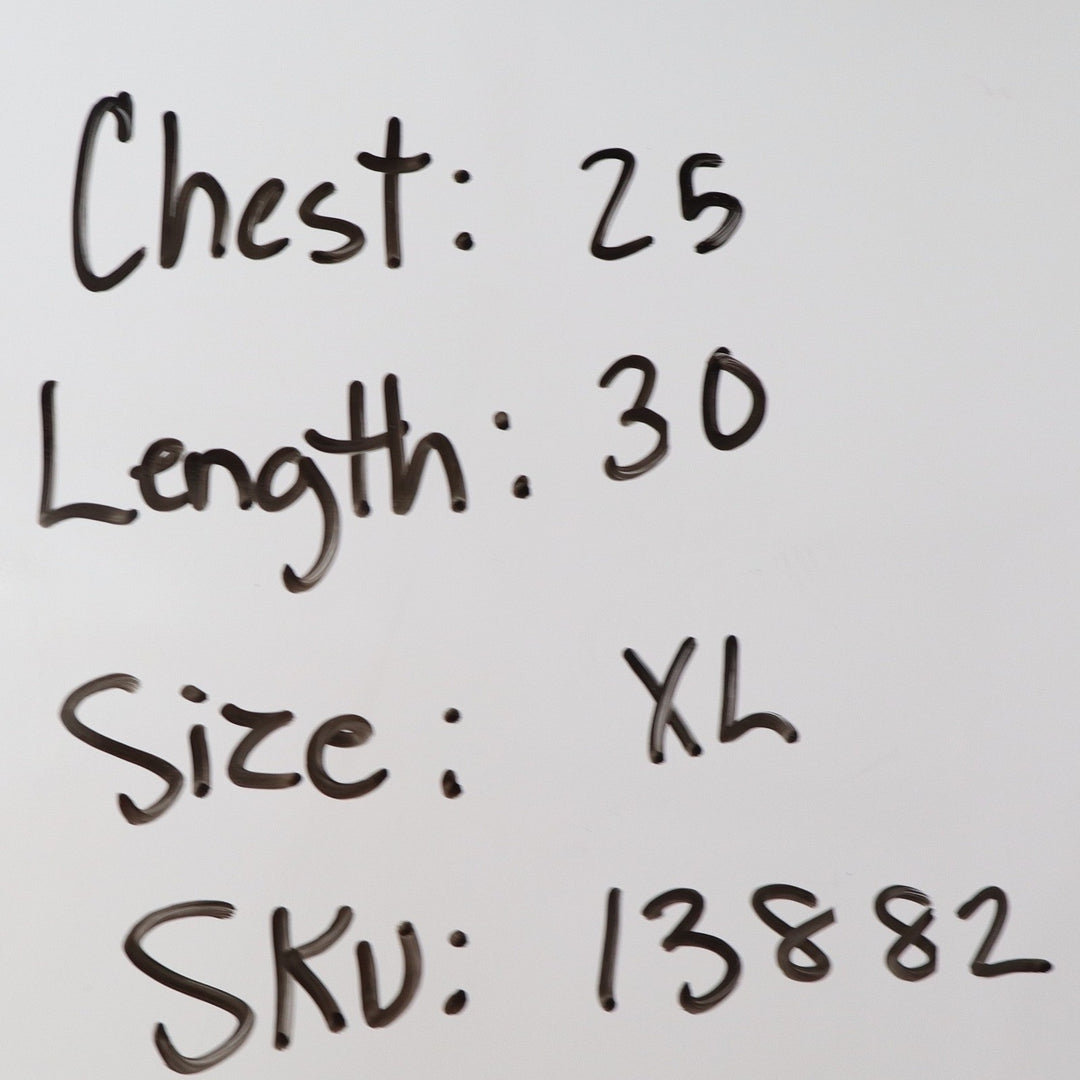 Chest: 25
Length: 30
Size: XL
SKU: 13882